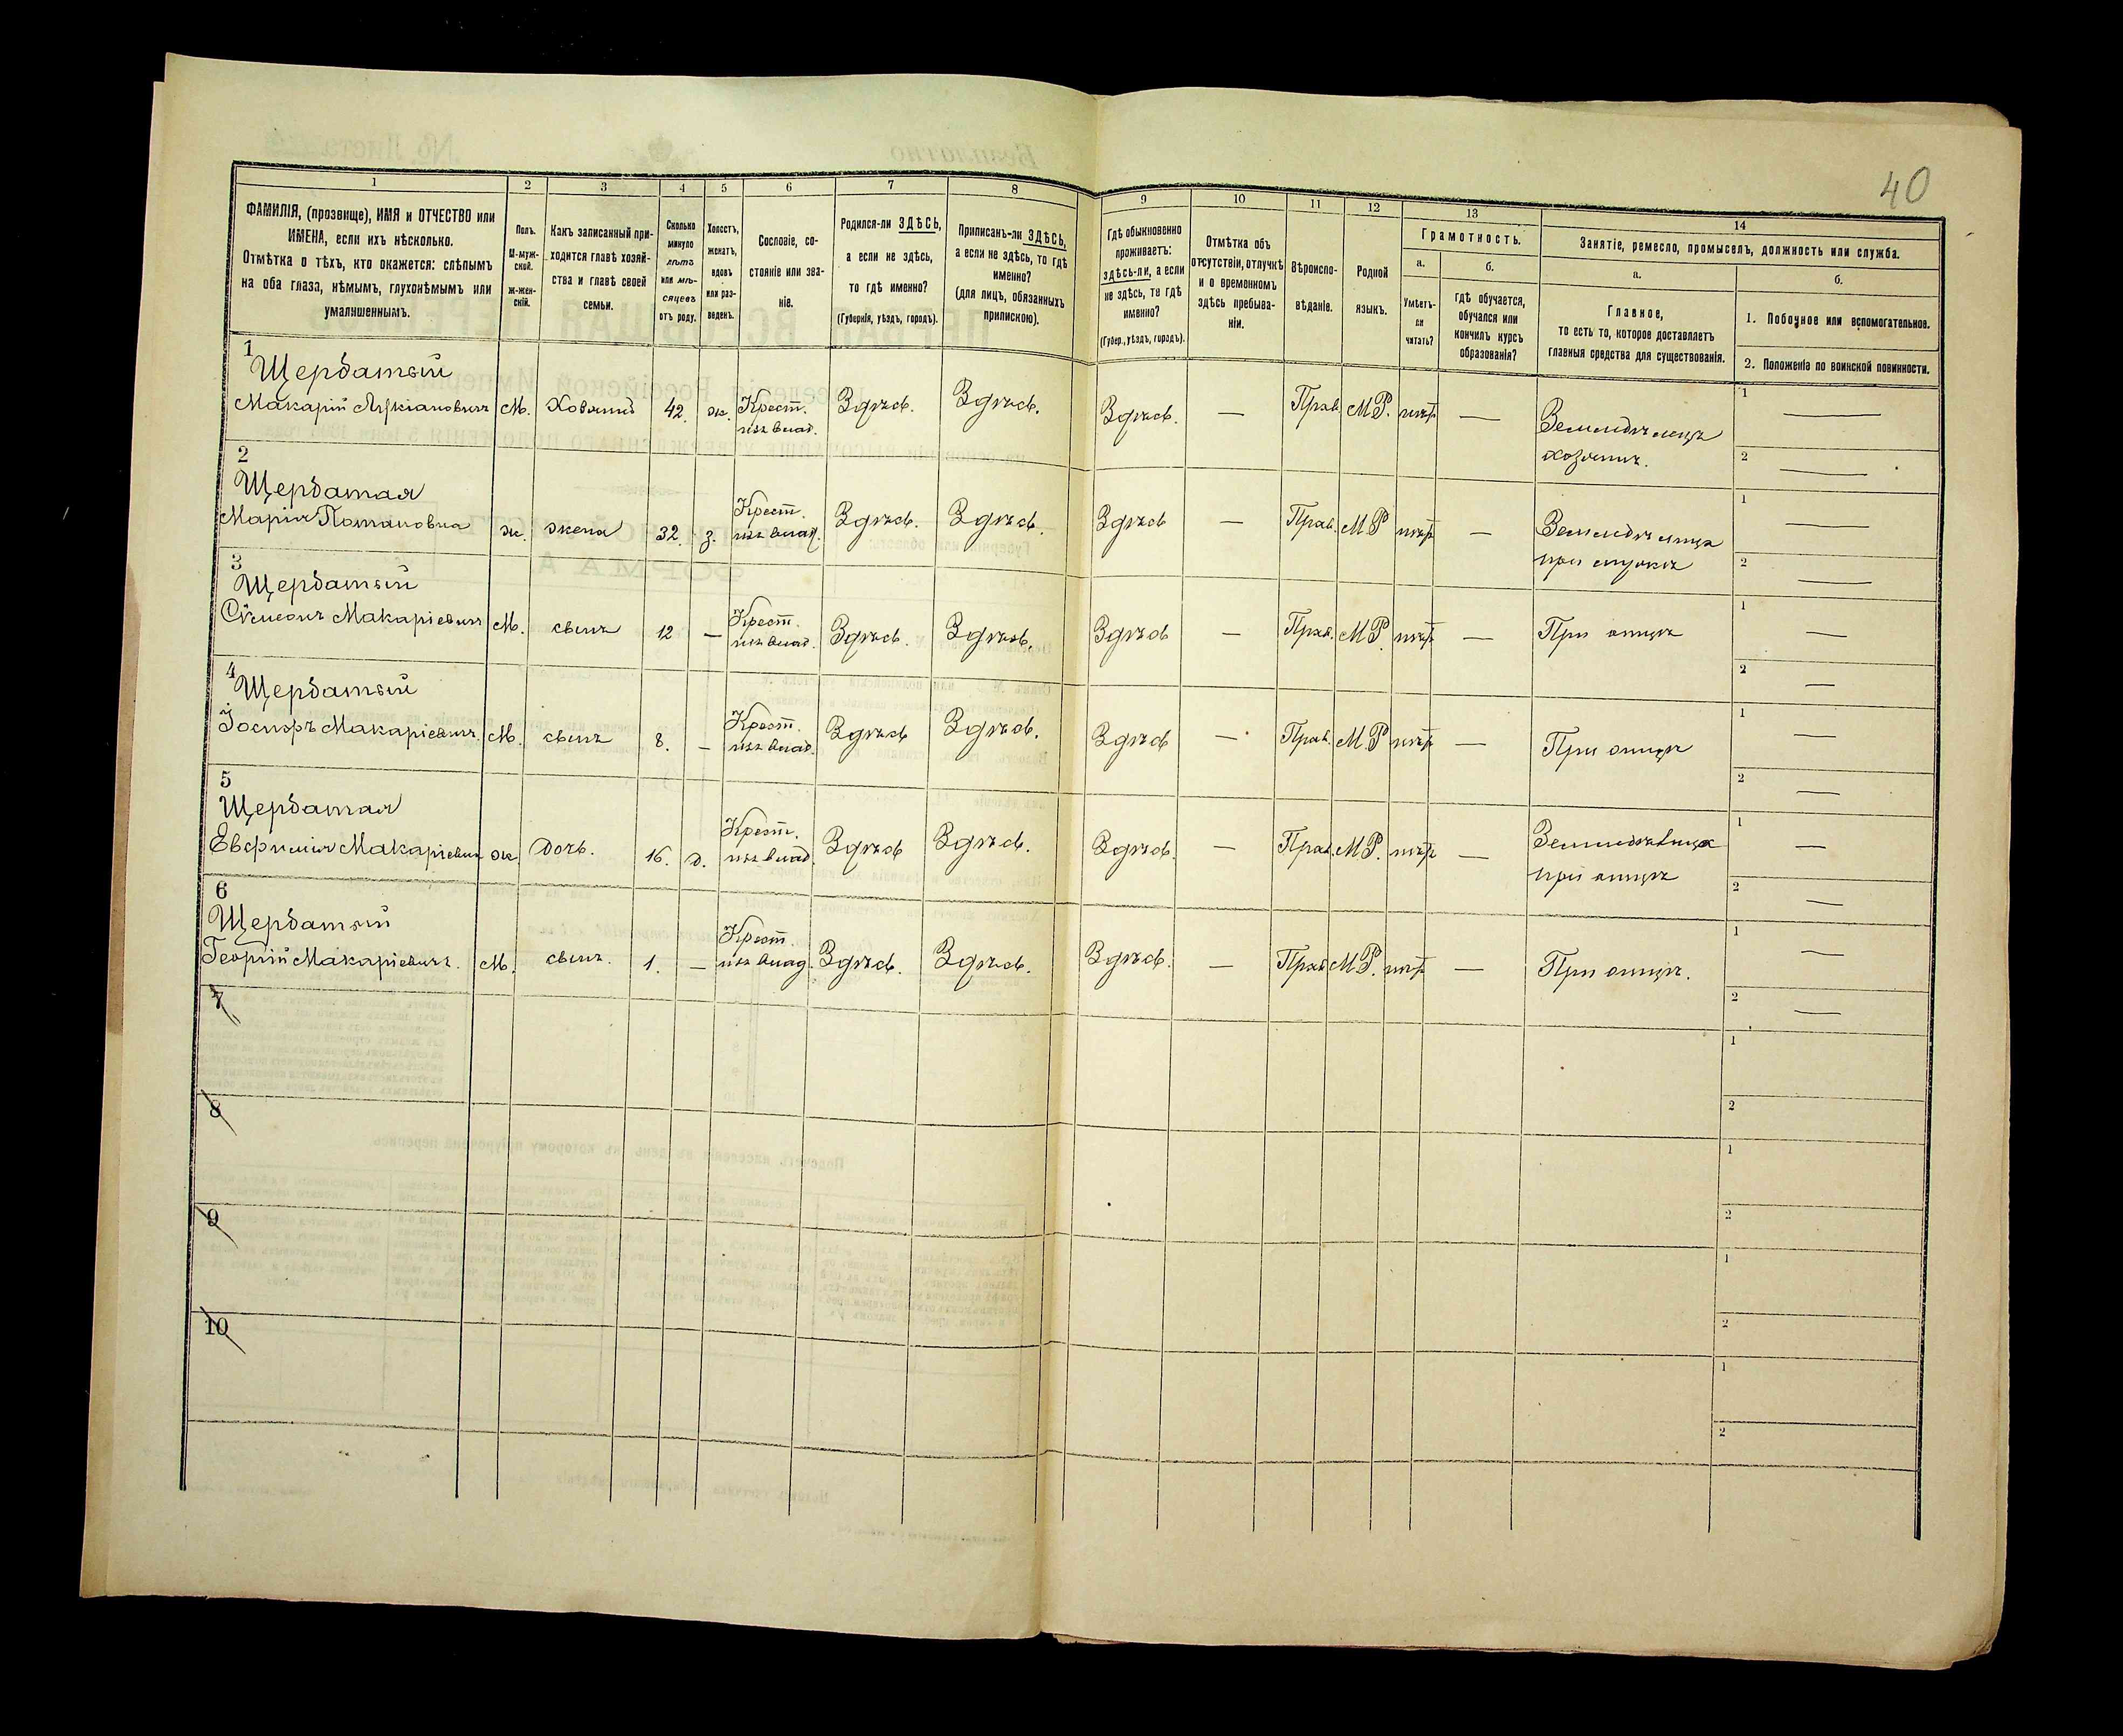 40
1 2 3 4 5 6 7 8 9 10 11 12 13 14
ФАМИЛІЯ, (прозвище), ИМЯ и ОТЧЕСТВО или
ИМЕНА, если ихъ нѣсколько.
Отмѣтка о тѣхъ, кто окажется: слѣпымъ
на оба глаза, нѣмымъ, глухонѣмымъ или
умалишеннымъ.
Полъ.
М-муж-
ской.
Ж-жен-
скій.
Какъ записанный при-
ходится главѣ хозяй-
ства и главѣ своей
семьи.
Сколько
минуло
лѣтъ
или мѣ-
сяцевъ
отъ роду.
Холостъ,
женатъ,
вдовъ
или раз-
веденъ.
Сословіе, со-
стояніе или зва-
ніе.
Родился-ли ЗДѢСЬ,
а если не здѣсь,
то гдѣ именно?
(Губернія, уѣздъ, городъ).
Приписанъ-ли ЗДѢСЬ,
а если не здѣсь, то гдѣ
именно?
(для лицъ, обязанныхъ
припискою).
Гдѣ обыкновенно
проживаетъ:
здѣсь-ли, а если
не здѣсь, то гдѣ
именно?
(Губер., уѣздъ, городъ).
Отмѣтка объ
отсутствіи, отлучкѣ
и о временномъ
здѣсь пребыва-
ніи.
Вѣроиспо-
вѣданіе.
Родной
языкъ.
Грамотность.
а.
Умѣетъ-
ли
читать?
б.
гдѣ обучается,
обучался или
кончилъ курсъ
образованія?
Занятіе, ремесло, промыселъ, должность или служба.
а.
Главное,
то есть то, которое доставляетъ
главныя средства для существованія.
б.
1. Побочное или вспомогательное.
2. Положеніе по воинской повинности.
1
Щербатый
Макарій М. 42. ж. Крест. Здѣсь. Здѣсь. Здѣсь. — Прав. М.Р. — Земледѣлецъ 1 —
хозяинъ. 2 —
2
Щербатая
Марія Потаповна ж. жена 32. з. Крест. Здѣсь. Здѣсь. Здѣсь — Прав. М.Р — 1 —
2 —
3
Щербатый
Сѵмеонъ Макаріевичъ М. сынъ 12 — Крест. Здѣсь. Здѣсь. Здѣсь — Прав. М.Р. — При отцѣ 1 —
2 —
4
Щербатый
Іосифъ Макаріевичъ М. сынъ 8. — Крест. Здѣсь Здѣсь. Здѣсь — Прав. М.Р — При отцѣ 1 —
2 —
5
Щербатая
Евфимія ж Дочь. 16. д. Крест. Здѣсь Здѣсь. Здѣсь. — Прав. М.Р. — 1 —
при отцѣ 2 —
6
Щербатый
Георгій Макаріевичъ. М. сынъ. 1. — Крест. Здѣсь. Здѣсь. Здѣсь. — Прав М.Р. — При отцѣ. 1 —
2 —
7
1
2
8
1
2
9
1
2
10
1
2